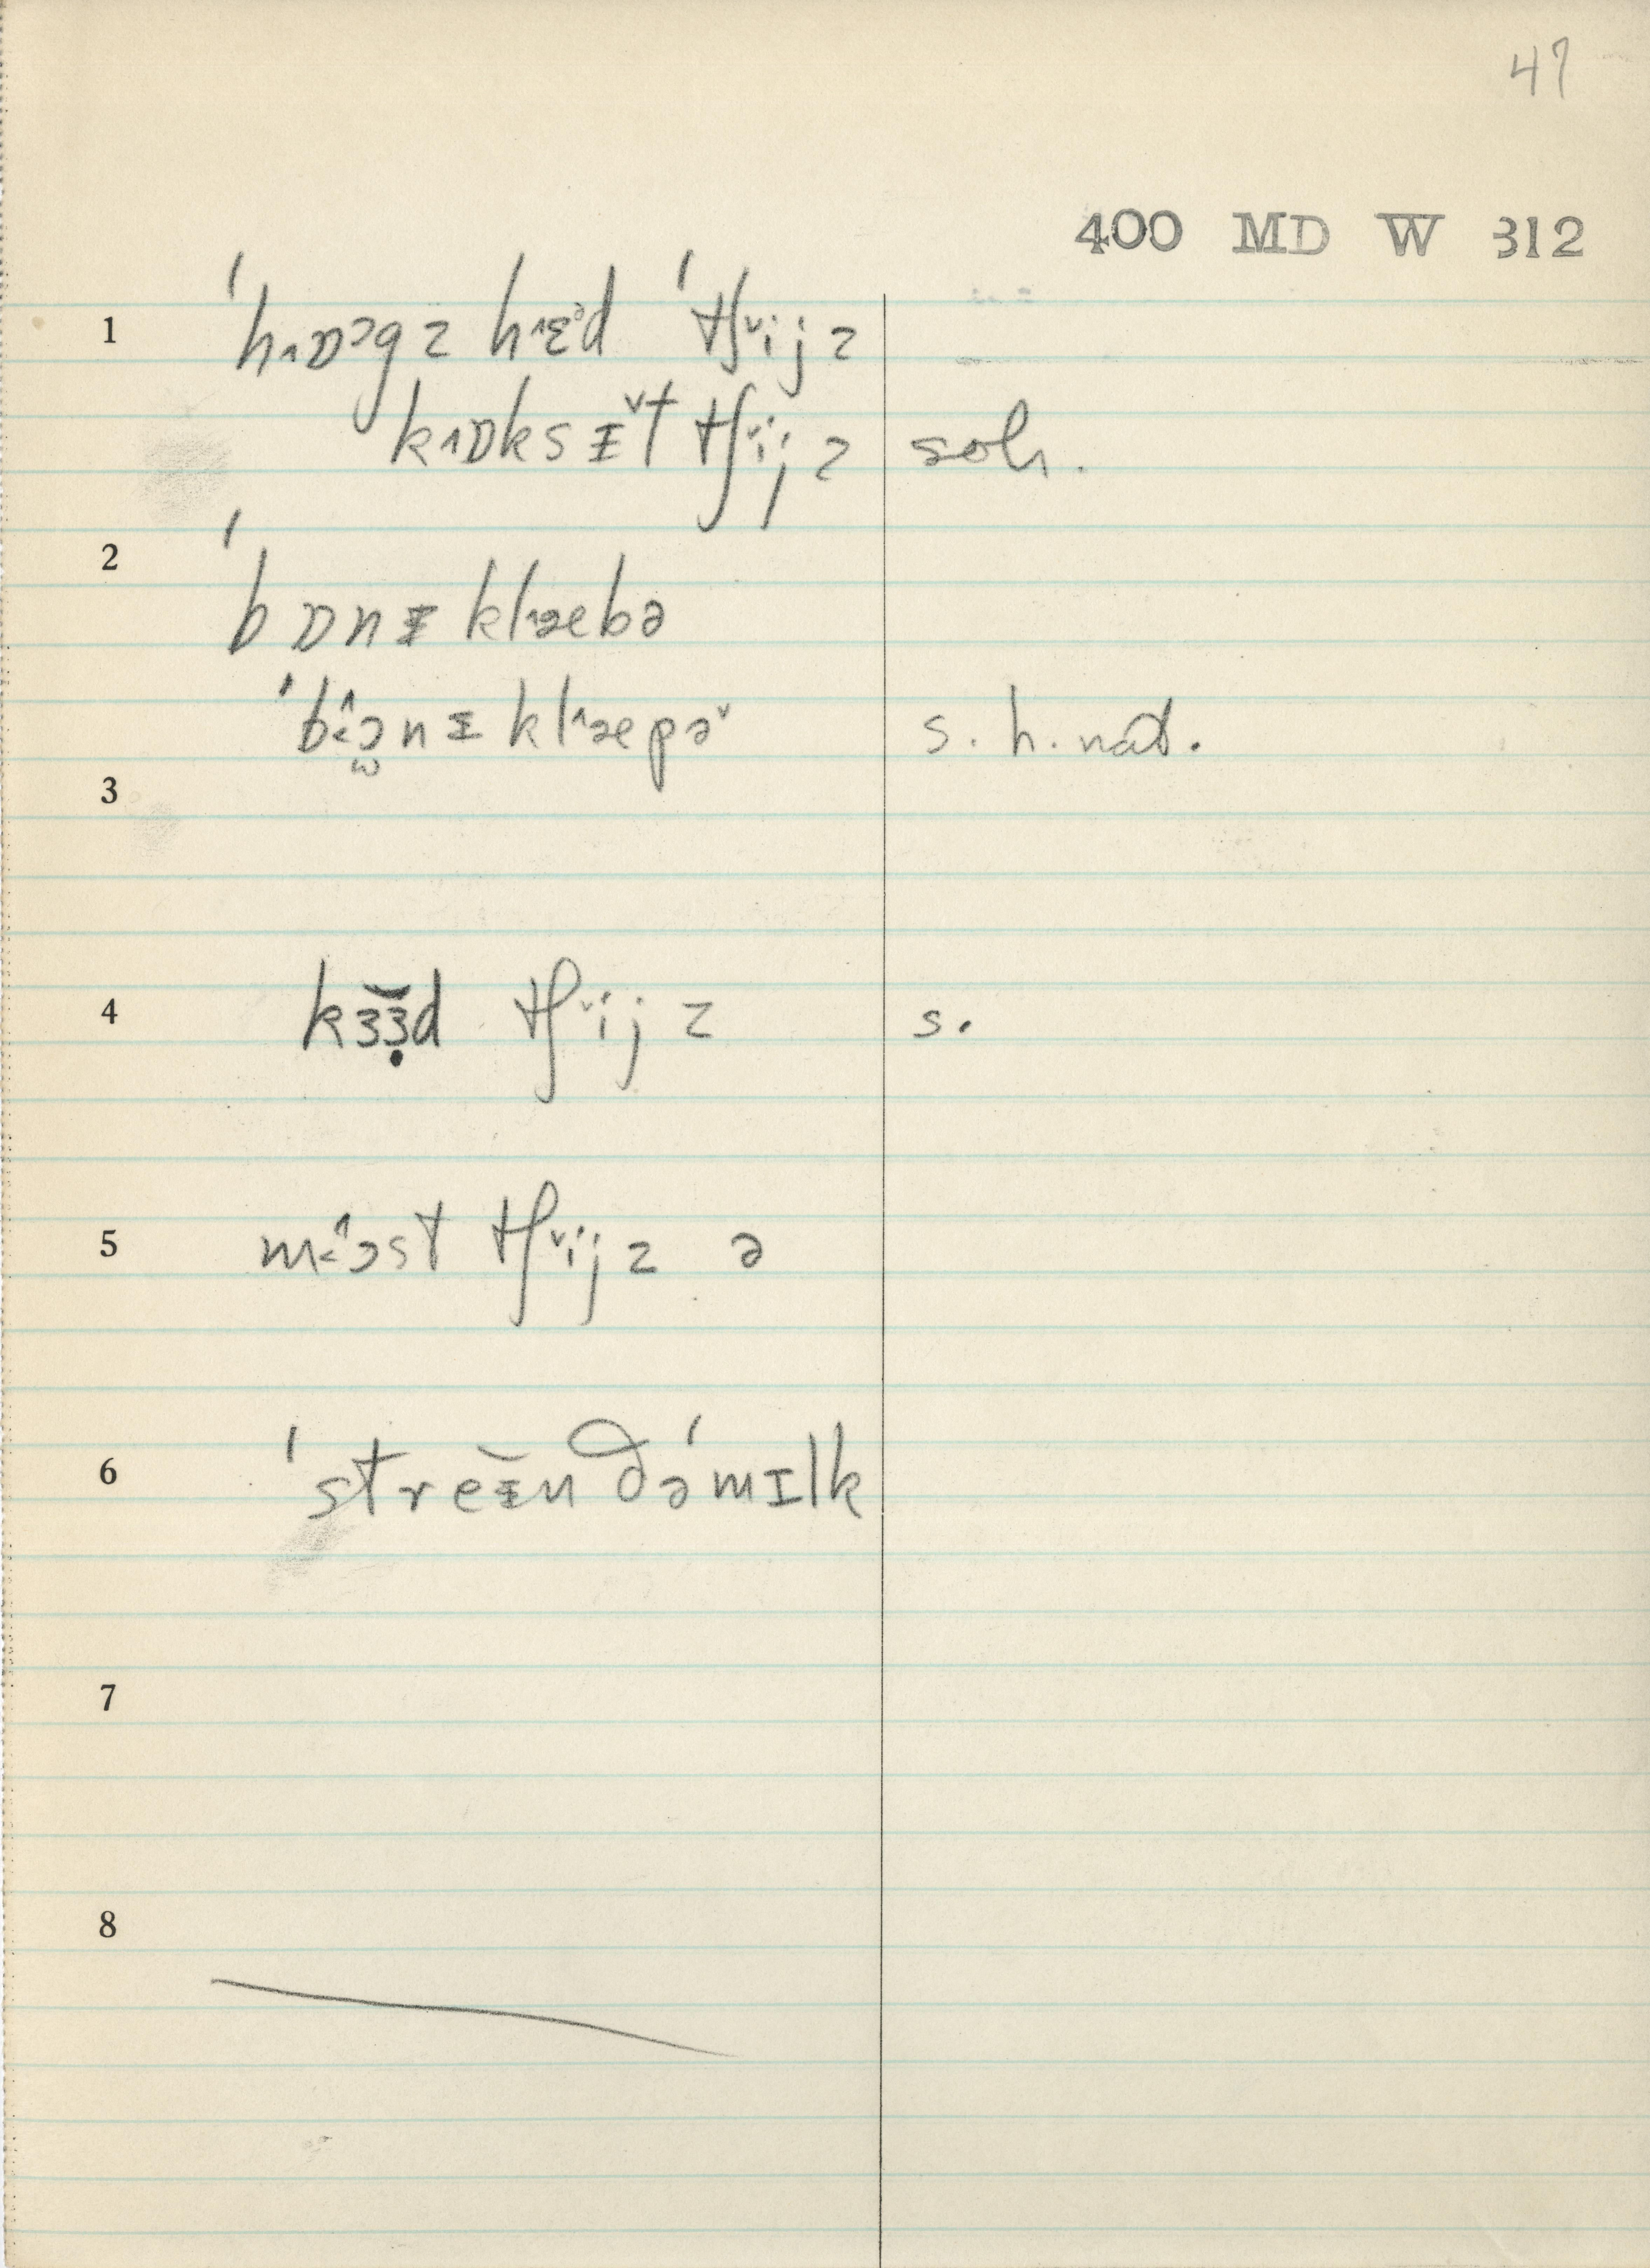 47
400 MD W 312
1 ˈhɒ˄ɔgz hɛ˄əd ˈtʃi˅jz
kɒ˄ksɪ̵̌t tʃi˅jz soh.
2 ˈbɒnɪ̵ klæ˄ebə
ˈbɔ̂nɪ̵ klæ˄epə˅ s. h. nat.
3
4 kɜɜ̣̆d tʃi˅jz s.
5 mɔ̂st tʃi˅jz ə
6 ˈstreɪ̵̆n ðəˈmɪlk
7
8